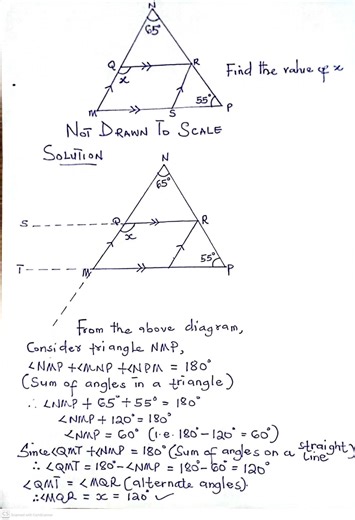 N
65°
Q
R
x
Find the value of x
55°
M
S
P
NOT DRAWN TO SCALE
SOLUTION
N
65°
S
Q
R
x
55°
T
M
P
From the above diagram,
Consider triangle NMP,
∠NMP + ∠MNP + ∠NPM = 180°
(Sum of angles in a triangle)
∴ ∠NMP + 65° + 55° = 180°
∠NMP + 120° = 180°
∠NMP = 60° (i.e. 180° - 120° = 60°)
Since ∠QMT + ∠NMP = 180° (Sum of angles on a straight line)
∴ ∠QMT = 180° - ∠NMP = 180° - 60° = 120°
∠QMT = ∠MQR (alternate angles)
∴ ∠MQR = x = 120° ✓